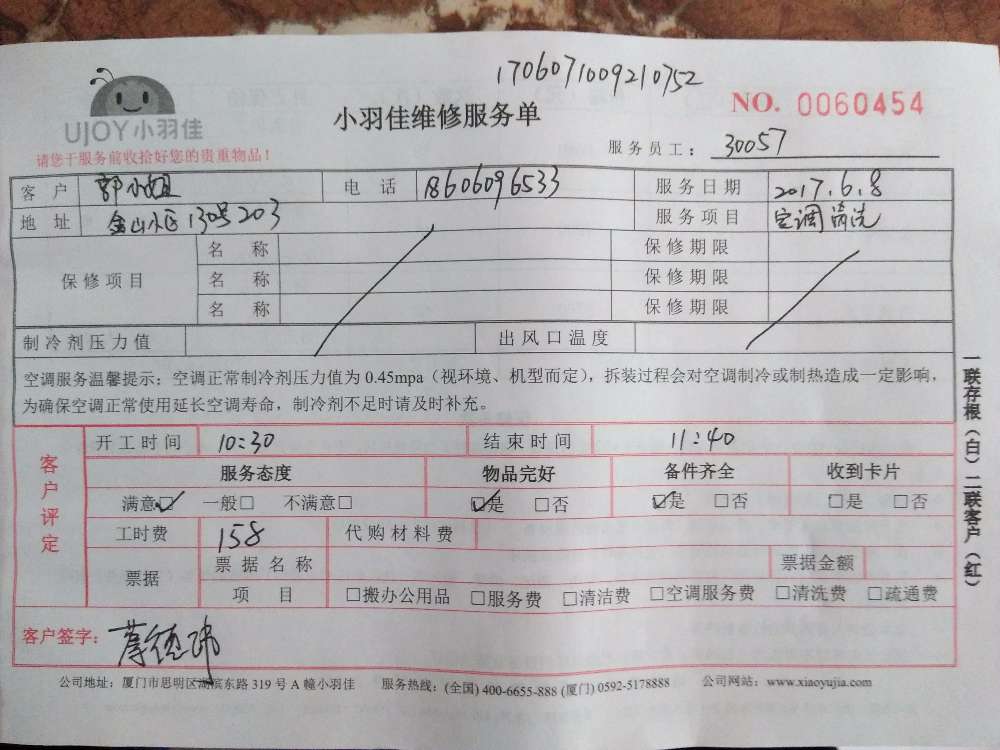 1706071009210752
UJOY小羽佳
小羽佳维修服务单
NO. 0060454
请您于服务前收拾好您的贵重物品！
服务员工： 30057
客户 郭小姐 电话 18606096533 服务日期 2017.6.8
地址 金山小区130号203 服务项目 空调清洗
保修项目 名称 保修期限
名称 保修期限
名称 保修期限
制冷剂压力值 出风口温度
空调服务温馨提示：空调正常制冷剂压力值为 0.45mpa（视环境、机型而定），拆装过程会对空调制冷或制热造成一定影响，
为确保空调正常使用延长空调寿命，制冷剂不足时请及时补充。
客户评定
开工时间 10:30 结束时间 11:40
服务态度 物品完好 备件齐全 收到卡片
满意☑ 一般□ 不满意□ ☑是 □否 ☑是 □否 □是 □否
工时费 158 代购材料费
票据 票据名称 票据金额
项目 □搬办公用品 □服务费 □清洁费 □空调服务费 □清洗费 □疏通费
客户签字：
公司地址：厦门市思明区湖滨东路 319 号 A 幢小羽佳 服务热线：(全国) 400-6655-888 (厦门) 0592-5178888 公司网站：www.xiaoyujia.com
一联存根（白）二联客户（红）